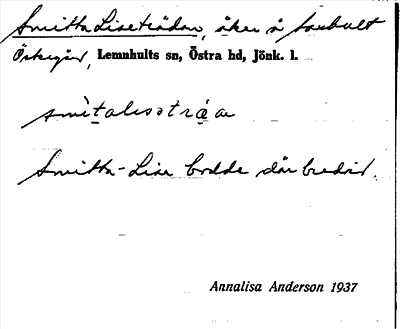 Smitta Liseträdan, åker å Boabult
Östergård, Lemnhults sn, Östra hd, Jönk. l.
smìtalisotrá̤a
Smitta-Lisa bodde där bredvid.
Annalisa Anderson 1937